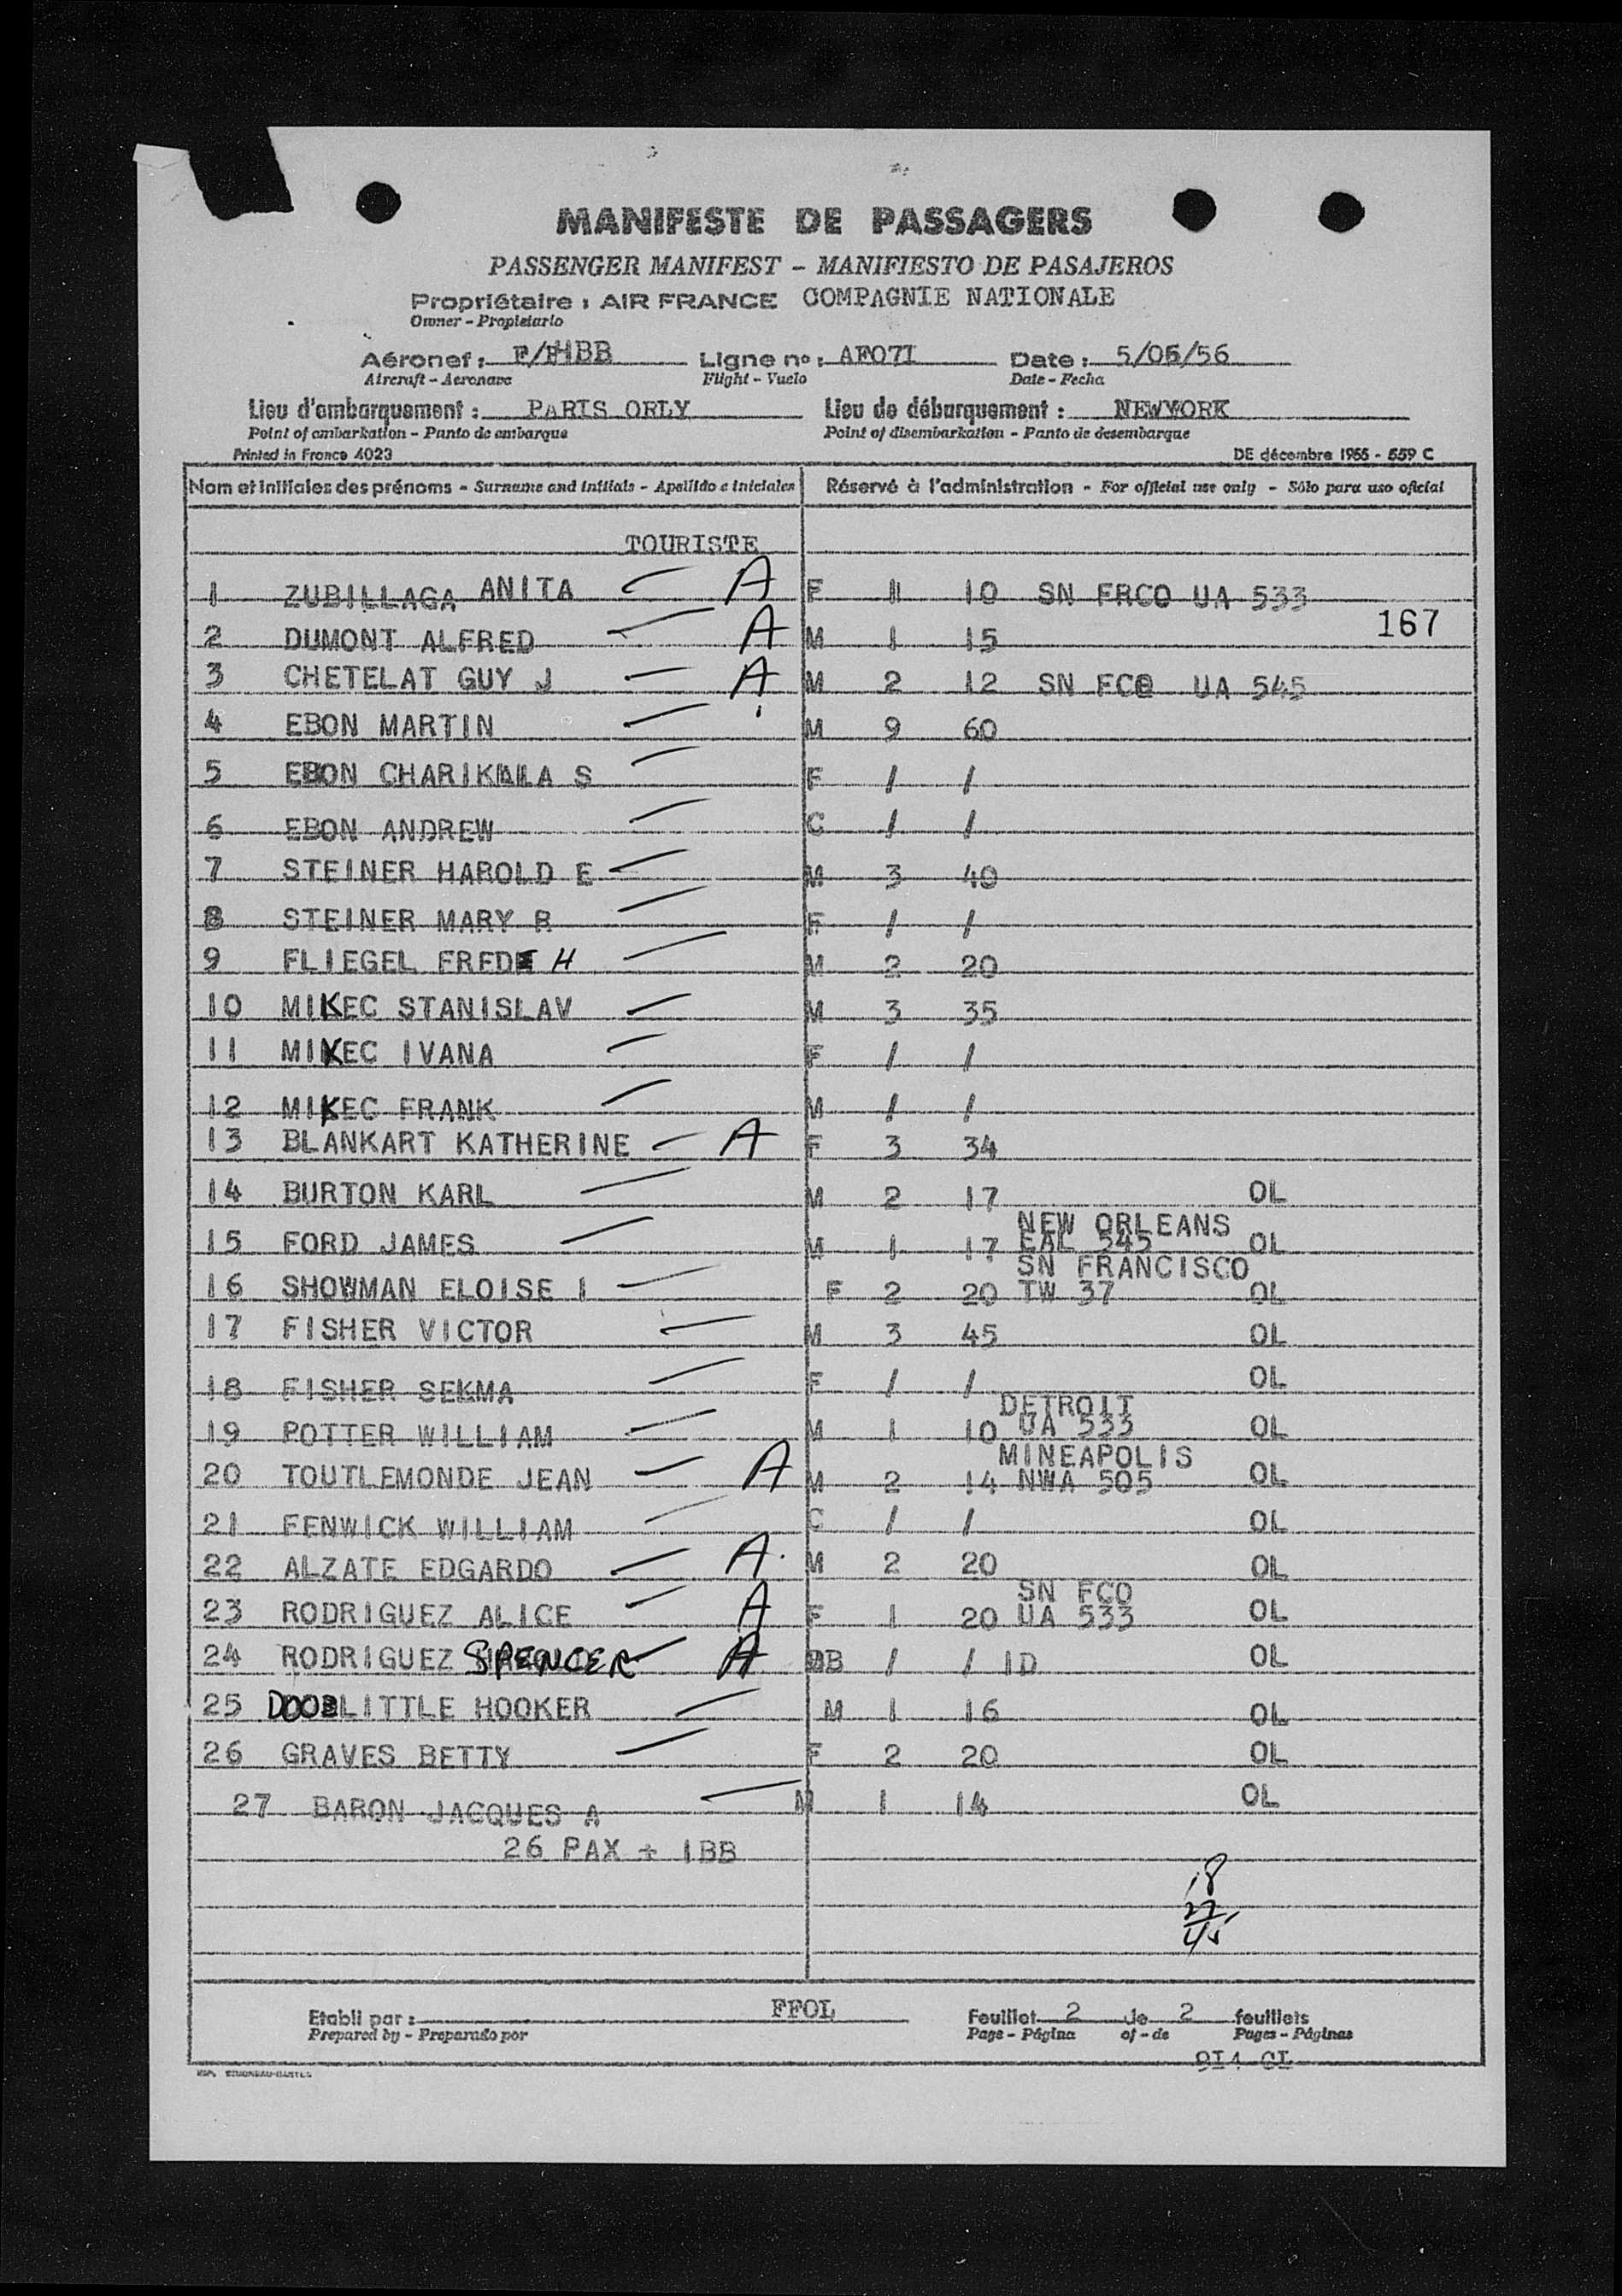 MANIFESTE DE PASSAGERS
PASSENGER MANIFEST - MANIFIESTO DE PASAJEROS
Propriétaire : AIR FRANCE COMPAGNIE NATIONALE
Owner - Propietario
Aéronef : F/BHBB Ligne nº : AF071 Date : 5/06/56
Aircraft - Aeronave Flight - Vuelo Date - Fecha
Lieu d'embarquement : PARIS ORLY Lieu de débarquement : NEWYORK
Point of embarkation - Punto de embarque Point of disembarkation - Punto de desembarque
Printed in France 4023 DE décembre 1955 - 559 C
Nom et initiales des prénoms - Surname and initials - Apellido e iniciales Réservé à l'administration - For official use only - Sólo para uso oficial
TOURISTE
1 ZUBILLAGA ANITA A F 1 10 SN FRCO UA 533
167
2 DUMONT ALFRED A M 1 15
3 CHETELAT GUY J A M 2 12 SN FCO UA 545
4 EBON MARTIN M 9 60
5 EBON CHARIKLLA S F / /
6 EBON ANDREW C / /
7 STEINER HAROLD E M 3 40
8 STEINER MARY R F / /
9 FLIEGEL FRED H M 2 20
10 MIKEC STANISLAV M 3 35
11 MIKEC IVANA F / /
12 MIKEC FRANK M / /
13 BLANKART KATHERINE A F 3 34
14 BURTON KARL M 2 17 OL
NEW ORLEANS
15 FORD JAMES M 1 17 EAL 545 OL
SN FRANCISCO
16 SHOWMAN ELOISE I F 2 20 TW 37 OL
17 FISHER VICTOR M 3 45 OL
18 FISHER SEKMA F / / OL
DETROIT
19 POTTER WILLIAM M 1 10 UA 533 OL
MINEAPOLIS
20 TOUTLEMONDE JEAN A M 2 14 NWA 505 OL
21 FENWICK WILLIAM C / / OL
22 ALZATE EDGARDO A M 2 20 OL
SN FCO
23 RODRIGUEZ ALICE A F 1 20 UA 533 OL
24 RODRIGUEZ SPENCER A BB / / ID OL
25 DOOLITTLE HOOKER M 1 16 OL
26 GRAVES BETTY F 2 20 OL
27 BARON JACQUES A M 1 14 OL
26 PAX + 1BB
18
27
45
Etabli par : FFOL Feuillet 2 de 2 feuillets
Prepared by - Preparado por Page - Página of - de Pages - Páginas